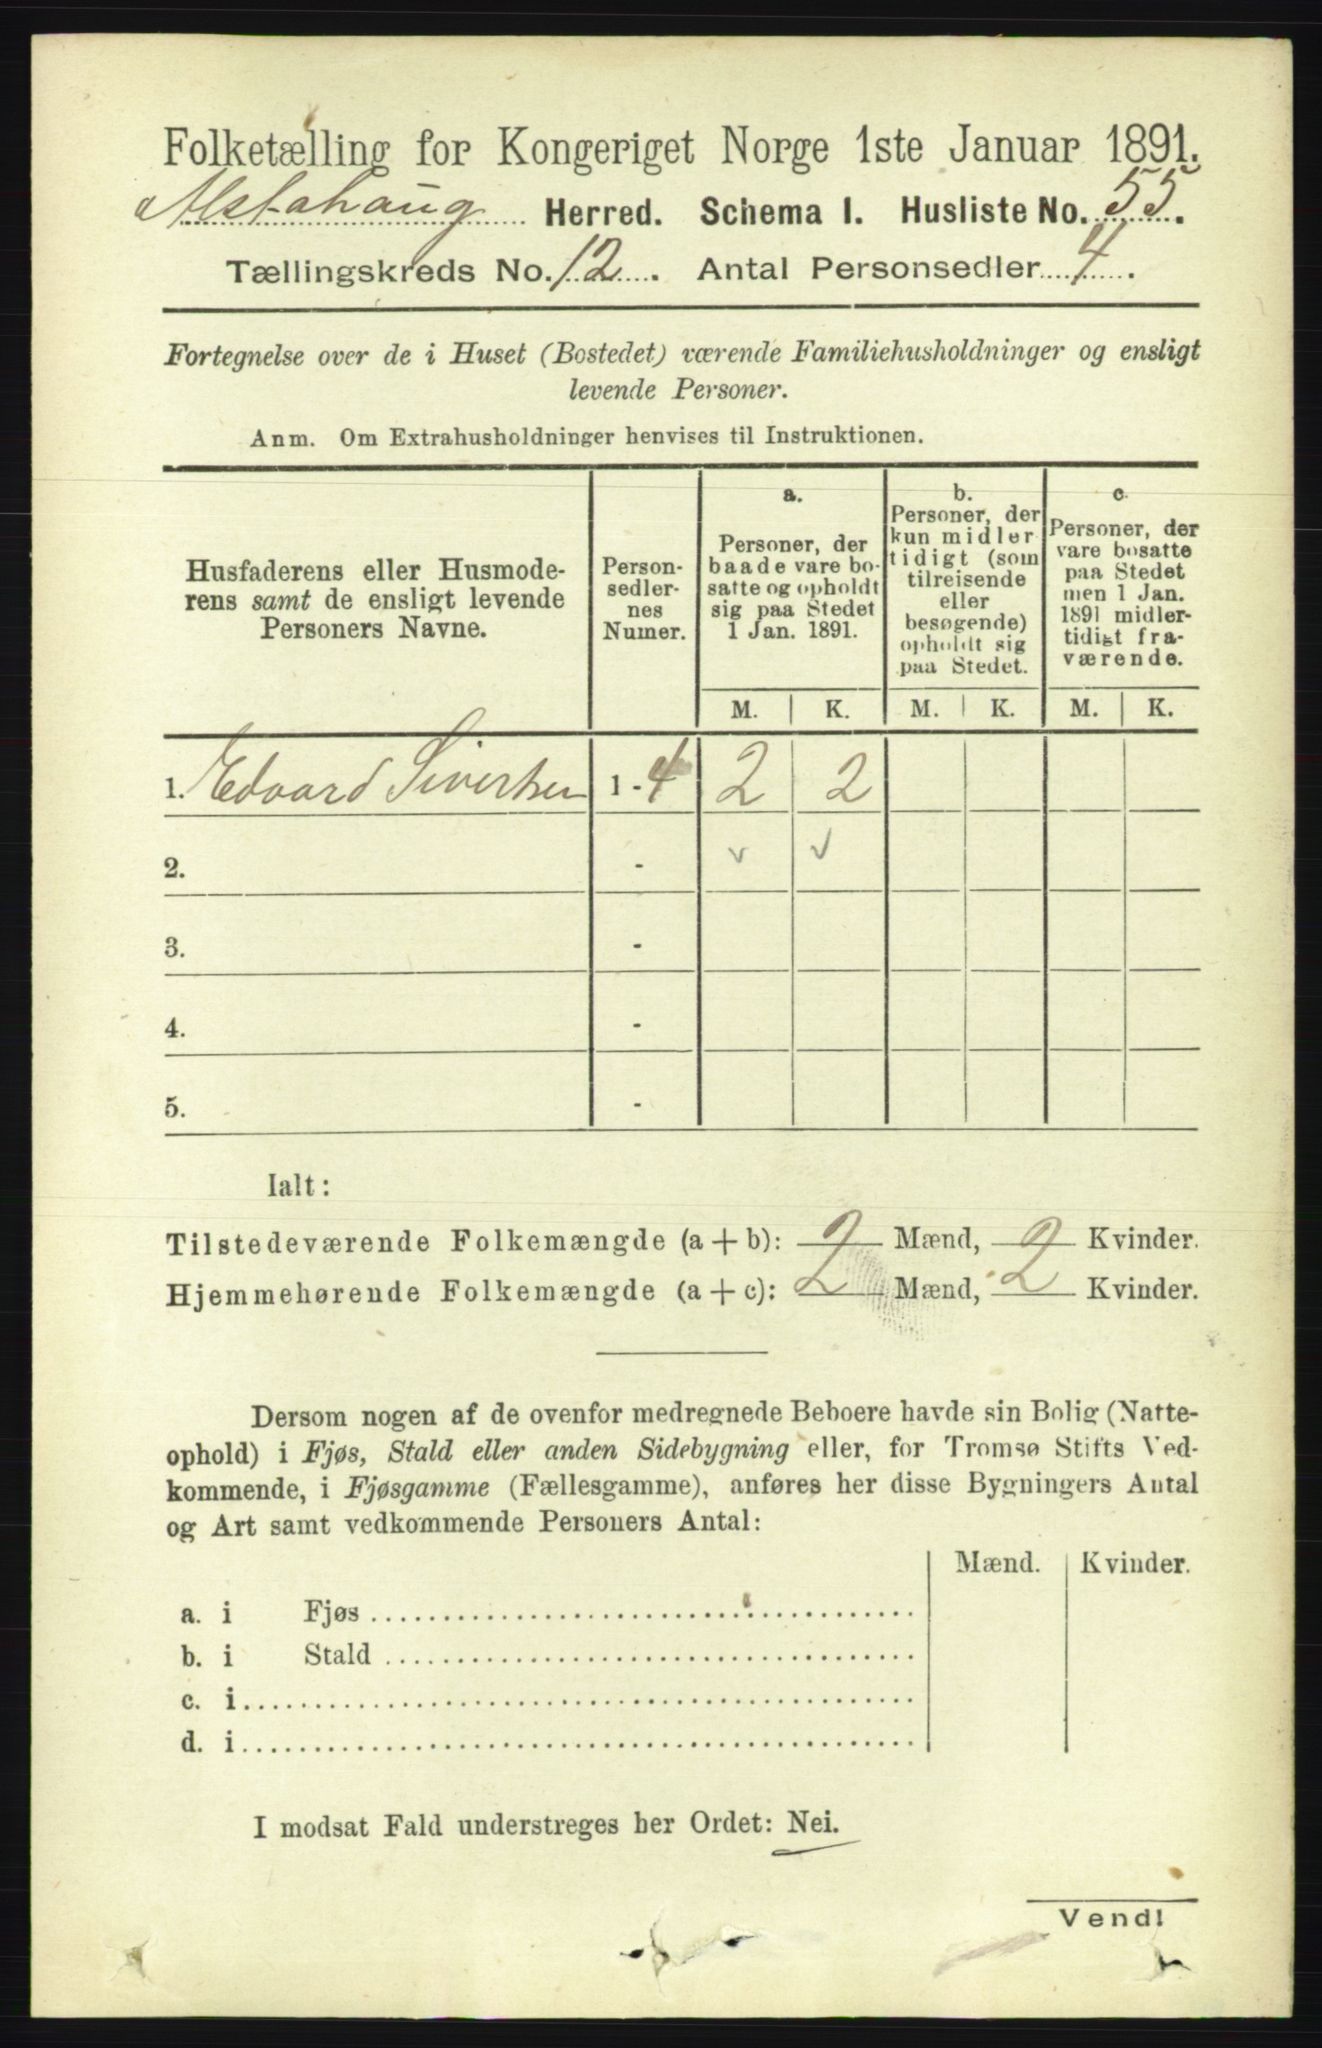 Folketælling for Kongeriget Norge 1ste Januar 1891.
Alstahaug Herred. Schema I. Husliste No. 55.
Tællingskreds No. 12. Antal Personsedler 4.
Fortegnelse over de i Huset (Bostedet) værende Familiehusholdninger og ensligt
levende Personer.
Anm. Om Extrahusholdninger henvises til Instruktionen.
Husfaderens eller Husmode-
rens samt de ensligt levende
Personers Navne.
Person-
sedler-
nes
Numer.
a.
Personer, der
baade vare bo-
satte og opholdt
sig paa Stedet
1 Jan. 1891.
b.
Personer, der
kun midler
tidigt (som
tilreisende
eller
besøgende)
opholdt sig
paa Stedet.
c.
Personer, der
vare bosatte
paa Stedet
men 1 Jan.
1891 midler-
tidigt fra-
værende.
M. K. M. K. M. K.
1. Edvard Sivertsen 1-4 2 2
2. - v v
3. -
4. -
5. -
Ialt:
Tilstedeværende Folkemængde (a + b): 2 Mænd, 2 Kvinder.
Hjemmehørende Folkemængde (a + c): 2 Mænd, 2 Kvinder.
Dersom nogen af de ovenfor medregnede Beboere havde sin Bolig (Natte-
ophold) i Fjøs, Stald eller anden Sidebygning eller, for Tromsø Stifts Ved-
kommende, i Fjøsgamme (Fællesgamme), anføres her disse Bygningers Antal
og Art samt vedkommende Personers Antal:
Mænd. Kvinder.
a. i Fjøs
b. i Stald
c. i
d. i
I modsat Fald understreges her Ordet: Nei.
Vend!